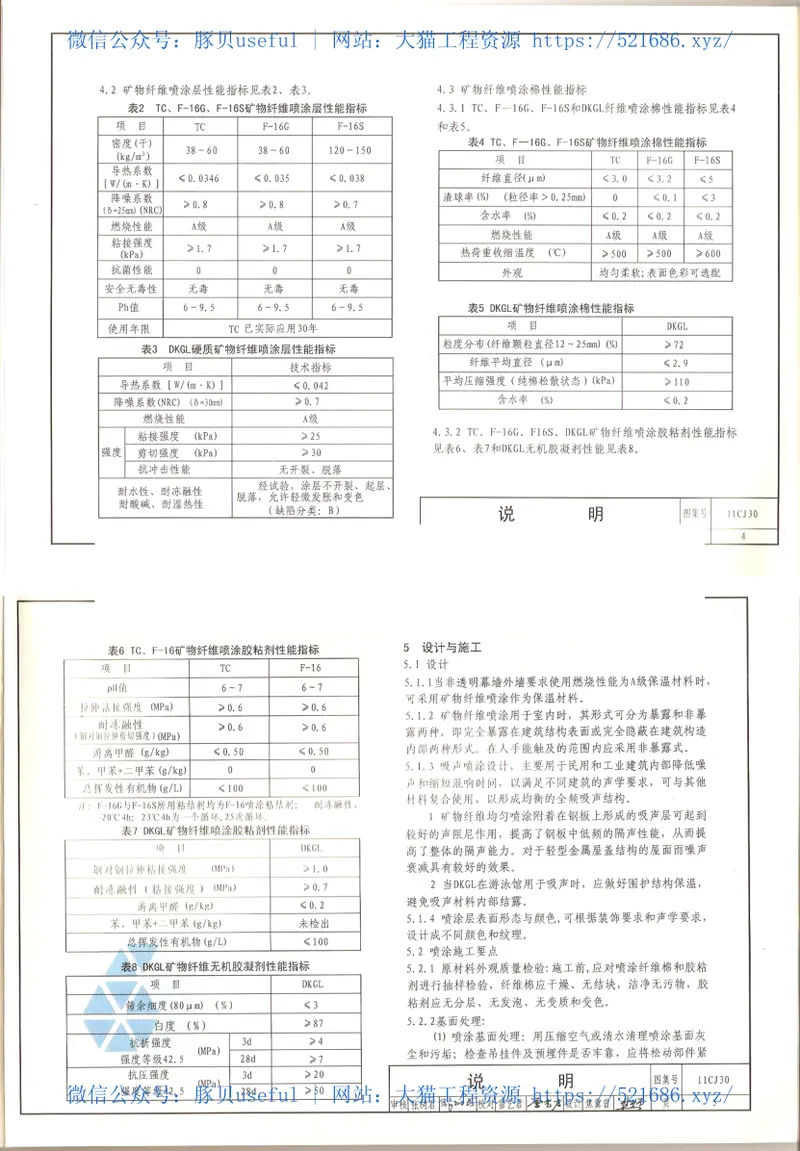 微信公众号：豚贝useful | 网站：大猫工程资源 https://521686.xyz/
4.2 矿物纤维喷涂层性能指标见表2、表3。
表2 TC、F-16G、F-16S矿物纤维喷涂层性能指标
项 目 TC F-16G F-16S
密度(干)
(kg/m³) 38~60 38~60 120~150
导热系数
[W/(m·K)] ≤0.0346 ≤0.035 ≤0.038
降噪系数
(δ=25mm)(NRC) ≥0.8 ≥0.8 ≥0.7
燃烧性能 A级 A级 A级
粘接强度
(kPa) ≥1.7 ≥1.7 ≥1.7
抗菌性能 0 0 0
安全无毒性 无毒 无毒 无毒
Ph值 6~9.5 6~9.5 6~9.5
使用年限 TC 已实际应用30年
表3 DKGL硬质矿物纤维喷涂层性能指标
项 目 技术指标
导热系数 [W/(m·K)] ≤0.042
降噪系数(NRC) (δ=30mm) ≥0.7
燃烧性能 A级
强度 粘接强度 (kPa) ≥25
剪切强度 (kPa) ≥30
抗冲击性能 无开裂、脱落
耐水性、耐冻融性
耐酸碱、耐湿热性
经试验，涂层不开裂、起层、
脱落，允许轻微发胀和变色
(缺陷分类：B)
4.3 矿物纤维喷涂棉性能指标
4.3.1 TC、F—16G、F-16S和DKGL纤维喷涂棉性能指标见表4
和表5。
表4 TC、F—16G、F-16S矿物纤维喷涂棉性能指标
项 目 TC F-16G F-16S
纤维直径(μm) ≤3.0 ≤3.2 ≤5
渣球率(%) (粒径率>0.25mm) 0 ≤0.1 ≤3
含水率 (%) ≤0.2 ≤0.2 ≤0.2
燃烧性能 A级 A级 A级
热荷重收缩温度 (℃) ≥500 ≥500 ≥600
外观 均匀柔软;表面色彩可选配
表5 DKGL矿物纤维喷涂棉性能指标
项 目 DKGL
粒度分布(纤维颗粒直径12~25mm)(%) ≥72
纤维平均直径 (μm) ≤2.9
平均压缩强度(纯棉松散状态)(kPa) ≥110
含水率 (%) ≤0.2
4.3.2 TC、F-16G、F16S、DKGL矿物纤维喷涂胶粘剂性能指标
见表6、表7和DKGL无机胶凝剂性能见表8。
说 明 图集号 11CJ30
4
表6 TC、F-16矿物纤维喷涂胶粘剂性能指标
项 目 TC F-16
pH值 6~7 6~7
拉伸粘接强度 (MPa) ≥0.6 ≥0.6
耐冻融性
(钢对钢拉伸剪切强度)(MPa) ≥0.6 ≥0.6
游离甲醛 (g/kg) ≤0.50 ≤0.50
苯、甲苯+二甲苯(g/kg) 0 0
总挥发性有机物(g/L) ≤100 ≤100
注：F-16G与F-16S所用粘结剂均为F-16喷涂粘结剂； 耐冻融性，
-20℃4h；23℃4h为一个循环,25次循环。
表7 DKGL矿物纤维喷涂胶粘剂性能指标
项 目 DKGL
钢对钢拉伸粘接强度 (MPa) ≥1.0
耐冻融性(粘接强度) (MPa) ≥0.7
游离甲醛 (g/kg) ≤0.2
苯、甲苯+二甲苯(g/kg) 未检出
总挥发性有机物(g/L) ≤100
表8 DKGL矿物纤维无机胶凝剂性能指标
项 目 DKGL
筛余细度(80μm) (%) ≤3
白度 (%) ≥87
抗折强度
强度等级42.5 (MPa) 3d ≥4
28d ≥7
抗压强度
强度等级42.5 (MPa) 3d ≥20
28d ≥50
5 设计与施工
5.1 设计
5.1.1当非透明幕墙外墙要求使用燃烧性能为A级保温材料时，
可采用矿物纤维喷涂作为保温材料。
5.1.2 矿物纤维喷涂用于室内时，其形式可分为暴露和非暴
露两种，即完全暴露在建筑结构表面或完全隐蔽在建筑构造
内部两种形式。在人手能触及的范围内应采用非暴露式。
5.1.3 吸声喷涂设计，主要用于民用和工业建筑内部降低噪
声和缩短混响时间，以满足不同建筑的声学要求，可与其他
材料复合使用，以形成均衡的全频吸声结构。
1 矿物纤维均匀喷涂附着在钢板上形成的吸声层可起到
较好的声阻尼作用，提高了钢板中低频的隔声性能，从而提
高了整体的隔声能力。对于轻型金属屋盖结构的屋面雨噪声
衰减具有较好的效果。
2 当DKGL在游泳馆用于吸声时，应做好围护结构保温，
避免吸声材料内部结露。
5.1.4 喷涂层表面形态与颜色,可根据装饰要求和声学要求，
设计成不同颜色和纹理。
5.2 喷涂施工要点
5.2.1 原材料外观质量检验:施工前,应对喷涂纤维棉和胶粘
剂进行抽样检验，纤维棉应干燥、无结块，洁净无污物，胶
粘剂应无分层、无发泡、无变质和变色。
5.2.2基面处理:
(1) 喷涂基面处理：用压缩空气或清水清理喷涂基面灰
尘和污垢；检查吊挂件及预埋件是否牢靠，应将松动部件紧
说 明 图集号 11CJ30
审核 校对 设计 页
微信公众号：豚贝useful | 网站：大猫工程资源 https://521686.xyz/